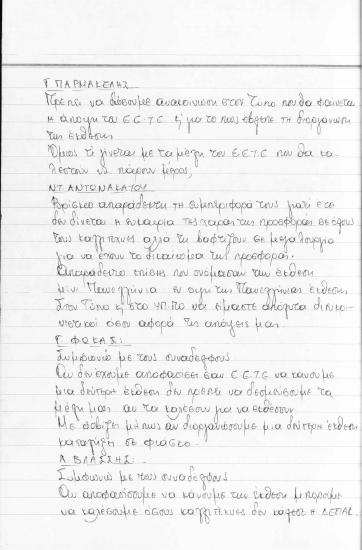 Γ. ΠΑΡΜΑΚΕΛΗΣ
Πρέπει να δώσουμε ανακοίνωση στον Τύπο που θα φαίνεται
η άποψη του Ε.Ε.Τ.Ε. για το πώς έβλεπε τη διοργάνωση
της έκθεσης.
Όμως τι γίνεται με τα μέλη του Ε.Ε.Τ.Ε. που θα κα-
λεστούν να πάρουν μέρος;
ΝΤ. ΑΝΤΩΝΑΚΑΤΟΥ
Βρίσκω απαράδεκτη τη συμπεριφορά τους γιατί έτσι
δεν δίνεται η ευκαιρία της χαράς της προσφοράς σε όλους
τους καλλιτέχνες αλλά τη βαφτίζουν σε μεγαλοστομία
για να έχουν το δικαίωμα της προσφοράς.
Απαράδεκτο επίσης που ονόμασαν την έκθεση
μίνι Πανελλήνια εν όψει της Πανελλήνιας έκθεσης.
Στον Τύπο ή στο ΥΠ.ΠΟ να είμαστε απόλυτα
όσον αφορά τις απόψεις μας.
Γ. ΦΩΚΑΣ:
Συμφωνώ με τους συναδέλφους
Αν δεν έχουμε αποφασίσει σαν Ε.Ε.Τ.Ε να κάνουμε
μια δεύτερη έκθεση δεν πρέπει να δεσμεύσουμε τα
μέλη μας αν τα καλέσουν για να εκθέσουν.
Με φοβίζει μήπως αν διοργανώσουμε μια δεύτερη έκθεση
καταλήξει σε φιάσκο.
Λ. ΒΛΑΣΣΗΣ:
Συμφωνώ με τους συναδέλφους
Αν αποφασίσουμε να κάνουμε την έκθεση μπορούμε
να καλέσουμε όσους καλλιτέχνες δεν κάλεσε η ΔΕΠΑΣ.